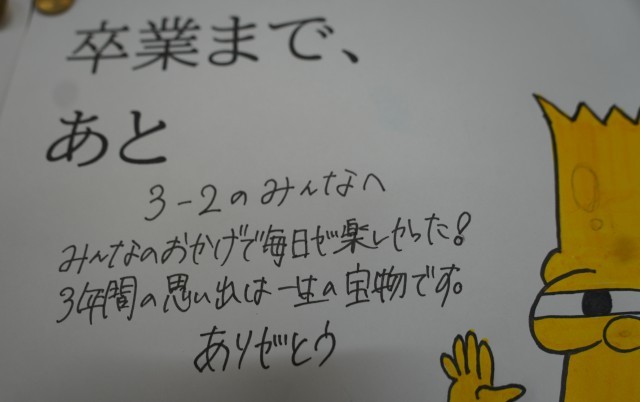 卒業まで、
あと
3-2のみんなへ
みんなのおかげで毎日が楽しかった!
3年間の思い出は一生の宝物です。
ありがとう